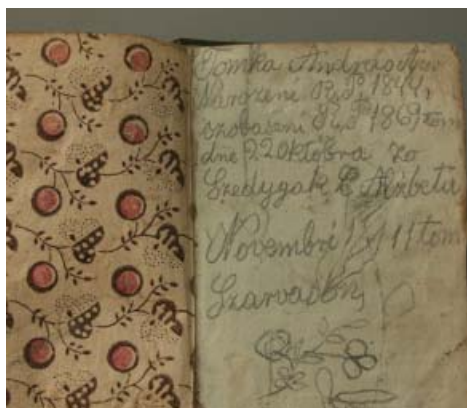 Tomka Andras
Narozeni R. P. 1844,
szobaseni R. P. 1869 tom
dne 22 Oktobra zo
Szedygak E Alzbetu
Novembri 11 tom
Szarvason,